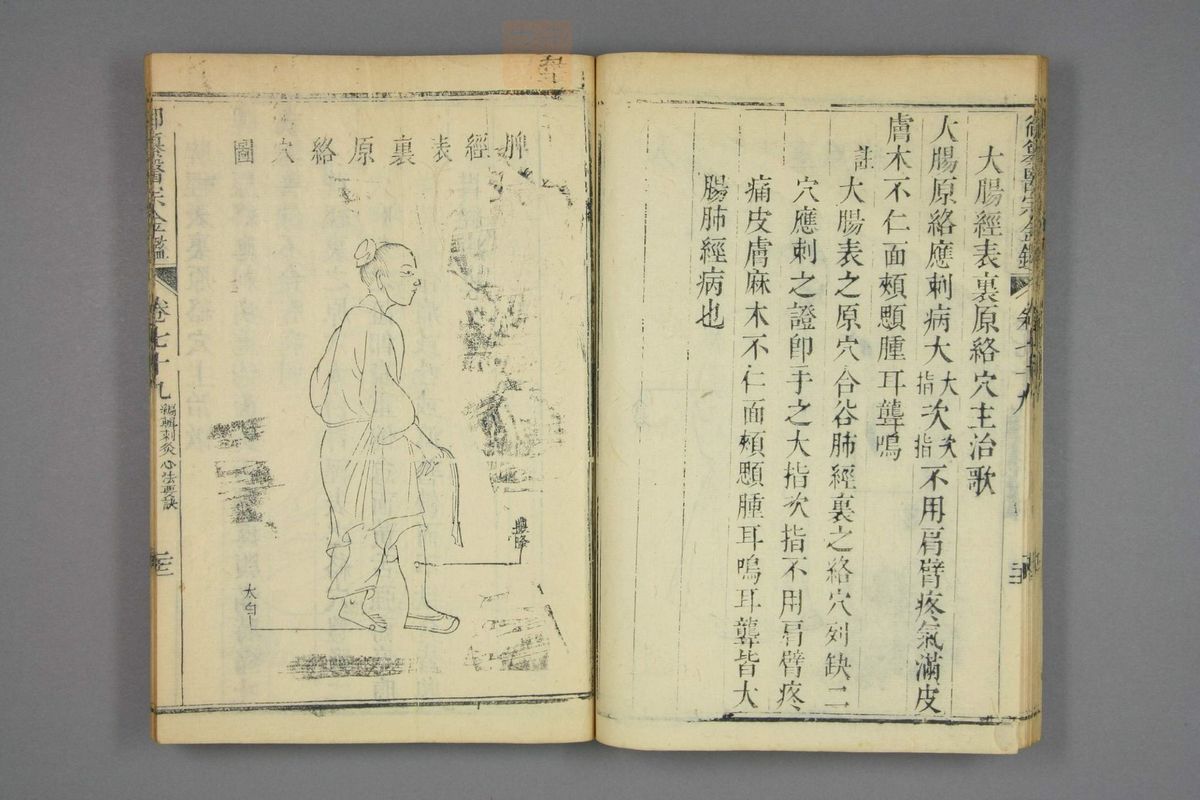 大腸經表裏原絡穴主治歌
大腸原絡應刺病大大指次次指不用肩臂疼氣滿皮
膚木不仁面頰顋腫耳聾鳴
註
大腸表之原穴合谷肺經裏之絡穴列缺二
穴應刺之證卽手之大指次指不用肩臂疼
痛皮膚麻木不仁面頰顋腫耳鳴耳聾皆大
腸肺經病也
脾經表裏原絡穴圖
豐隆
太白
御纂醫宗金鑑
卷七十九
編輯刺灸心法要訣